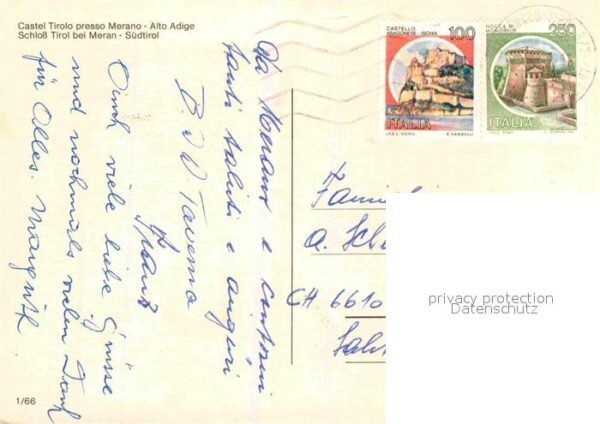 Castel Tirolo presso Merano - Alto Adige
Schloß Tirol bei Meran - Südtirol
CASTELLO
ARAGONESE - ISCHIA
100
ITALIA
I.P.Z.S. ROMA E. VANGELLI
ROCCA DI
250
ITALIA
I.P.Z.S. ROMA
Da Merano e contorni
tanti saluti e auguri
B W Taverna
Auch viele liebe Grüsse
und nochmals vielen Dank
für Alles. Margrith
CH 6610
privacy protection
Datenschutz
1/66